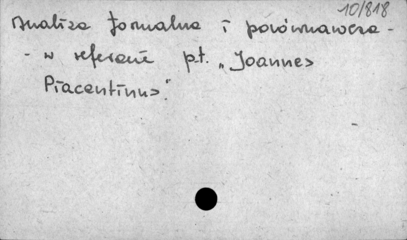 10/818
analiza formalna i porównawcza -
- w referacie p.t. „Joannes
Piacentinus".